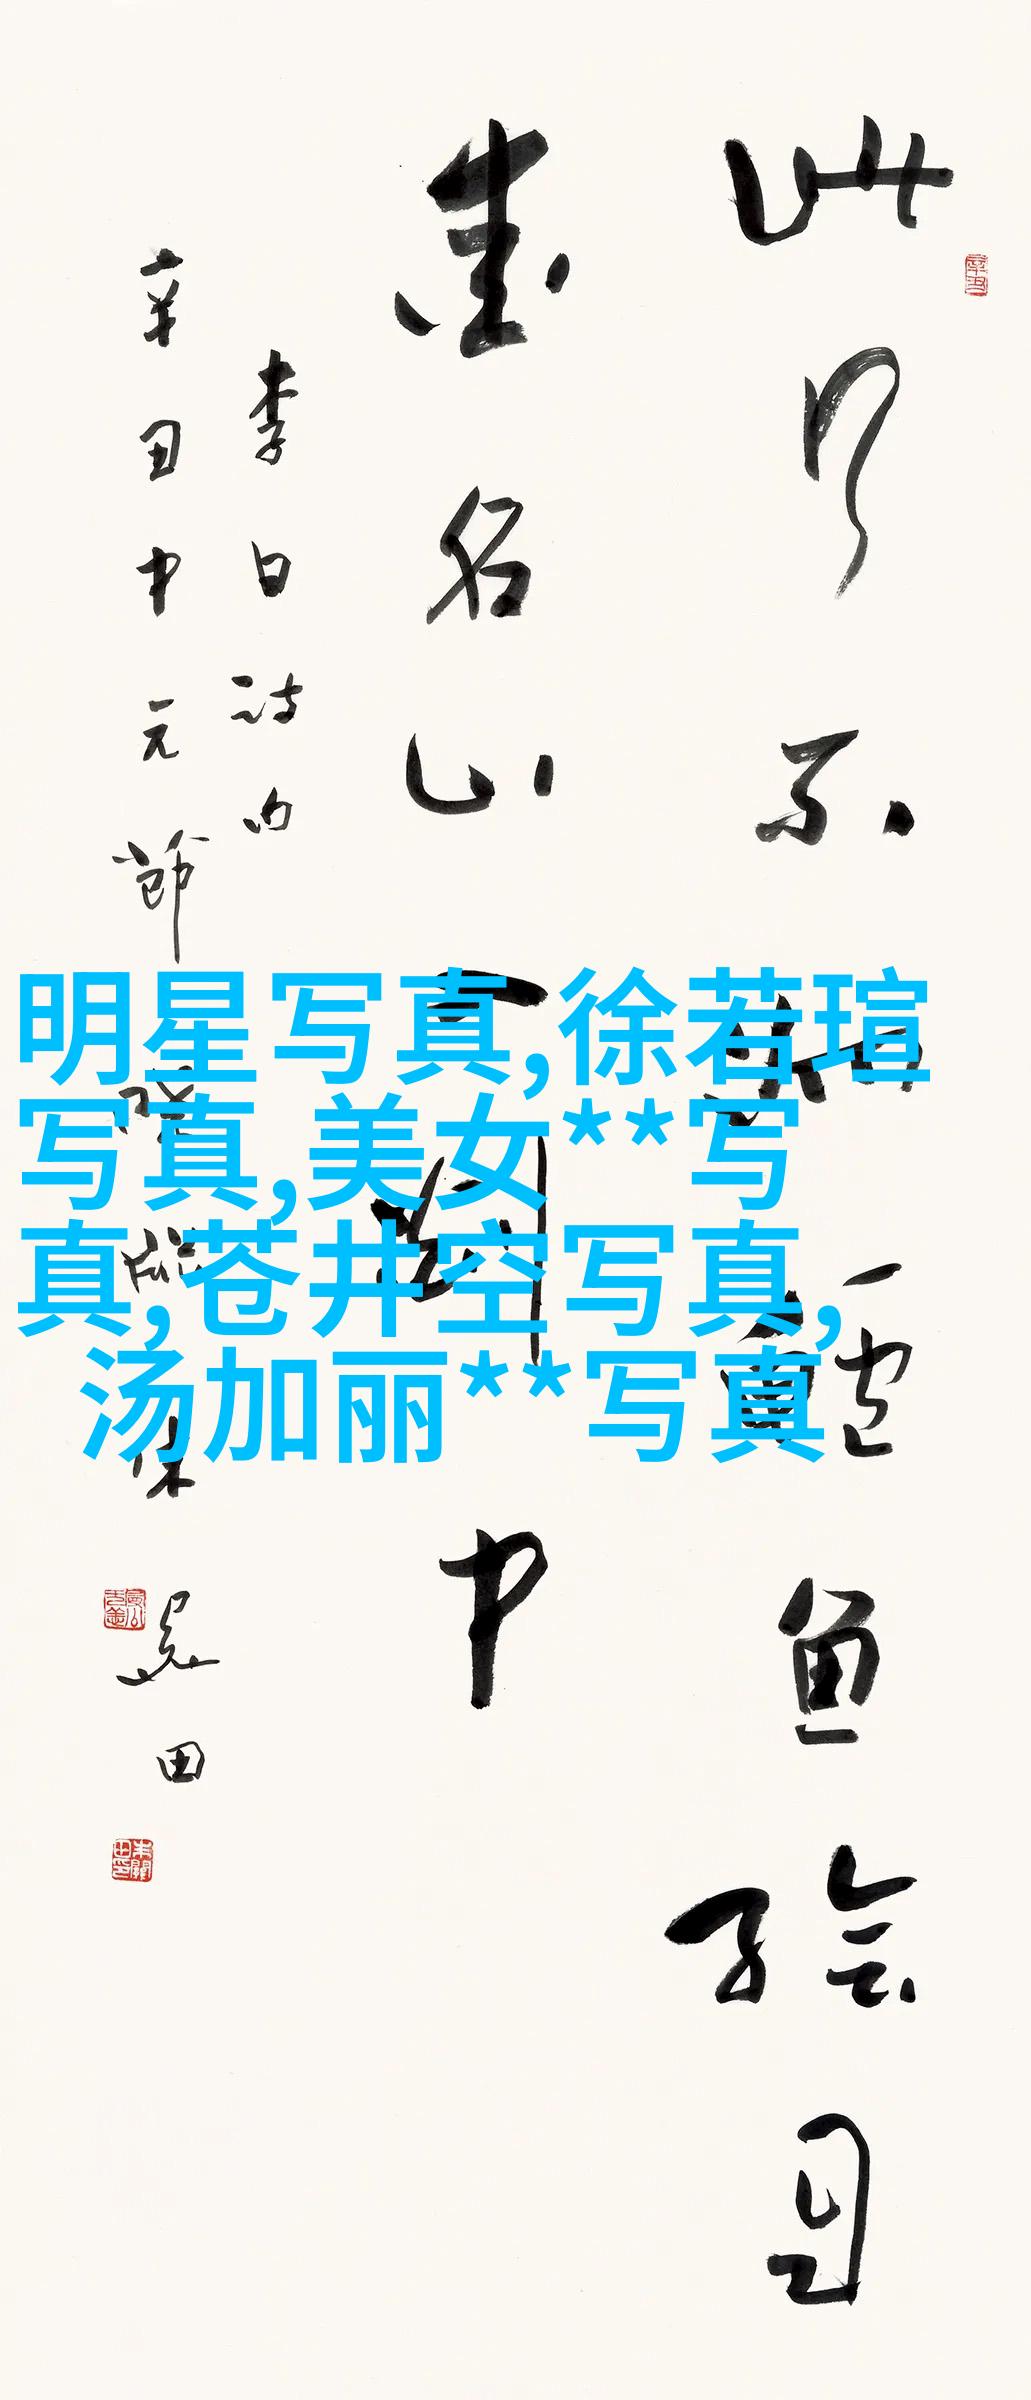 明星写真,徐若瑄
写真,美女**写
真,苍井空写真,
汤加丽**写真
此行不為鱸魚繪自
愛名山入剡中
李白詩句
辛丑中元節
田